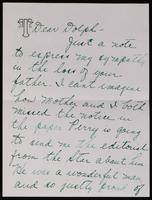 Dear Dolph-
Just a note
to express my sympathy
in the loss of your
father. I can't imagine
how Mother and I both
missed the notice in
the paper Perry is going
to send me the editorial
from the Star about him
He was a wonderful man
and so justly proud of